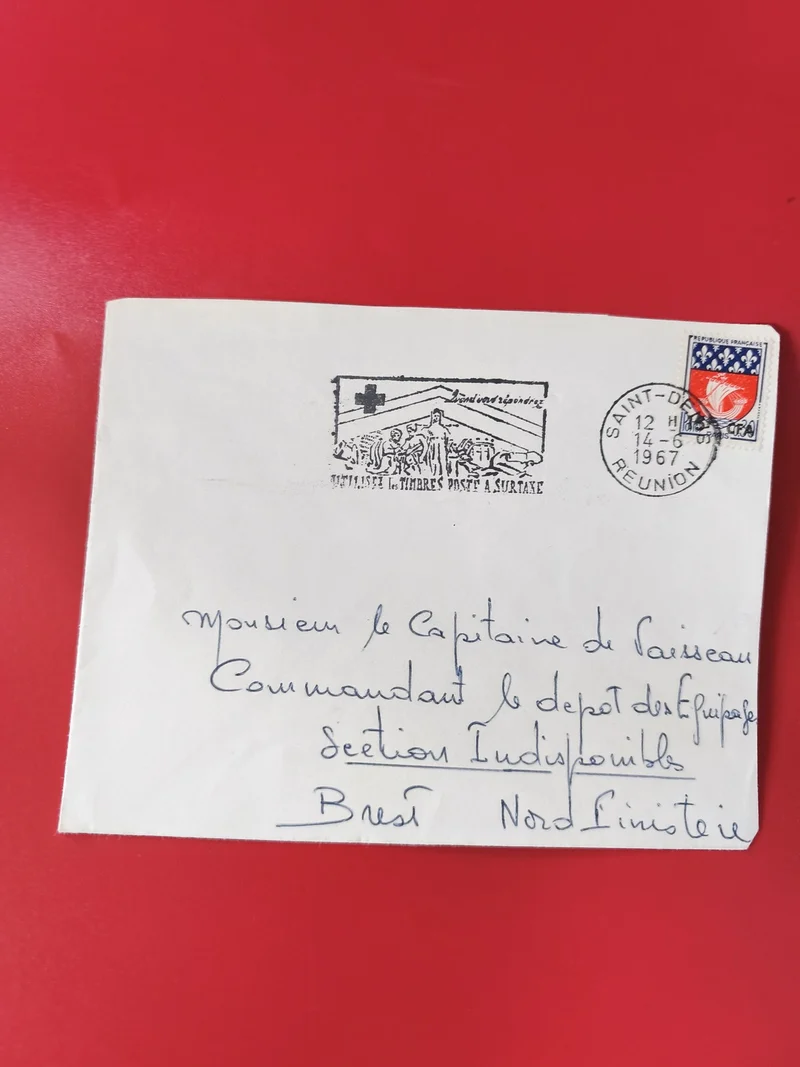 RÉPUBLIQUE FRANÇAISE
15F CFA
SAINT-DENIS
12 H
14-6
1967
RÉUNION
vous répondrez
UTILISEZ les TIMBRES POSTE A SURTAXE
Monsieur le Capitaine de Vaisseau
Commandant le depot des Equipages
Section Indisponibles
Brest Nord Finistere